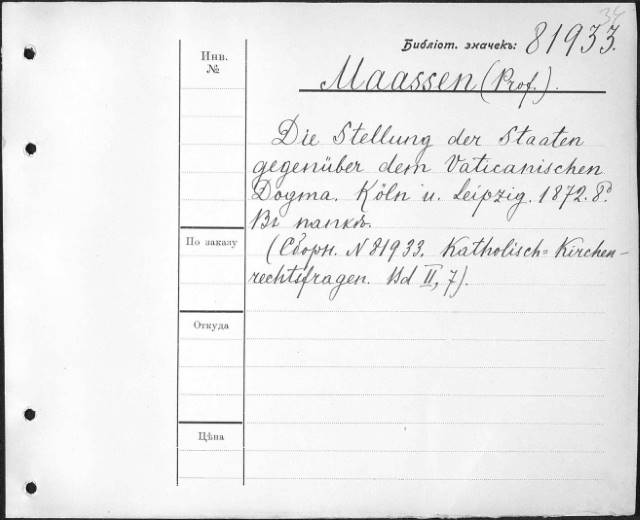 34
Библіот. значекъ: 81933.
Инв. №
Maassen (Prof.).
Die Stellung der Staaten
gegenüber dem Vaticanischen
Dogma. Köln u. Leipzig. 1872. 8º.
Въ папкѣ.
По заказу
(Сборн. N 81933. Katholisch=Kirchen-
rechtsfragen. Bd II, 7).
Откуда
Цѣна